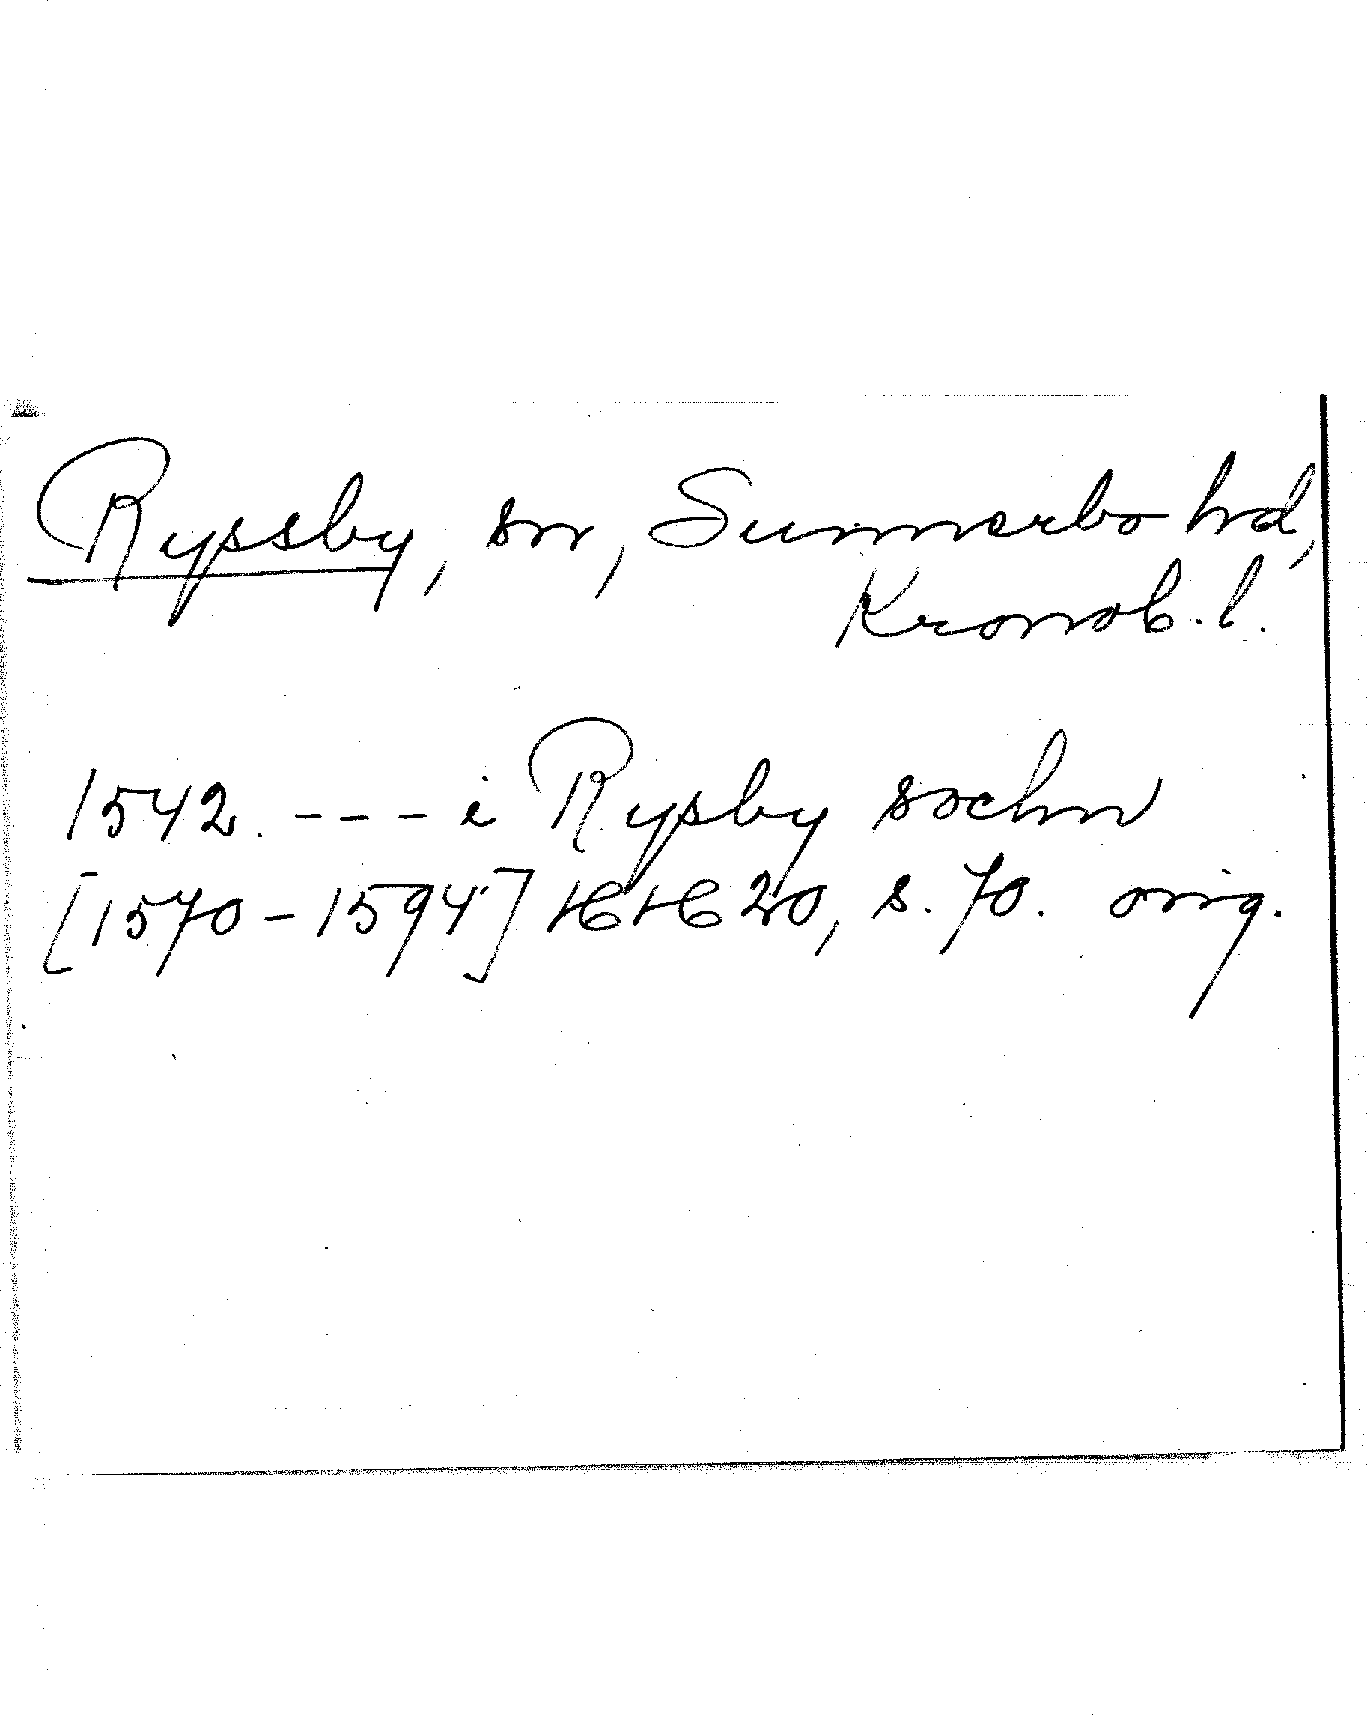 Ryssby, sn, Sunnerbo hd,
Kronob. l.
1542. --- i Rysby sochn
[1570-1594] HH 20, s. 70. orig.